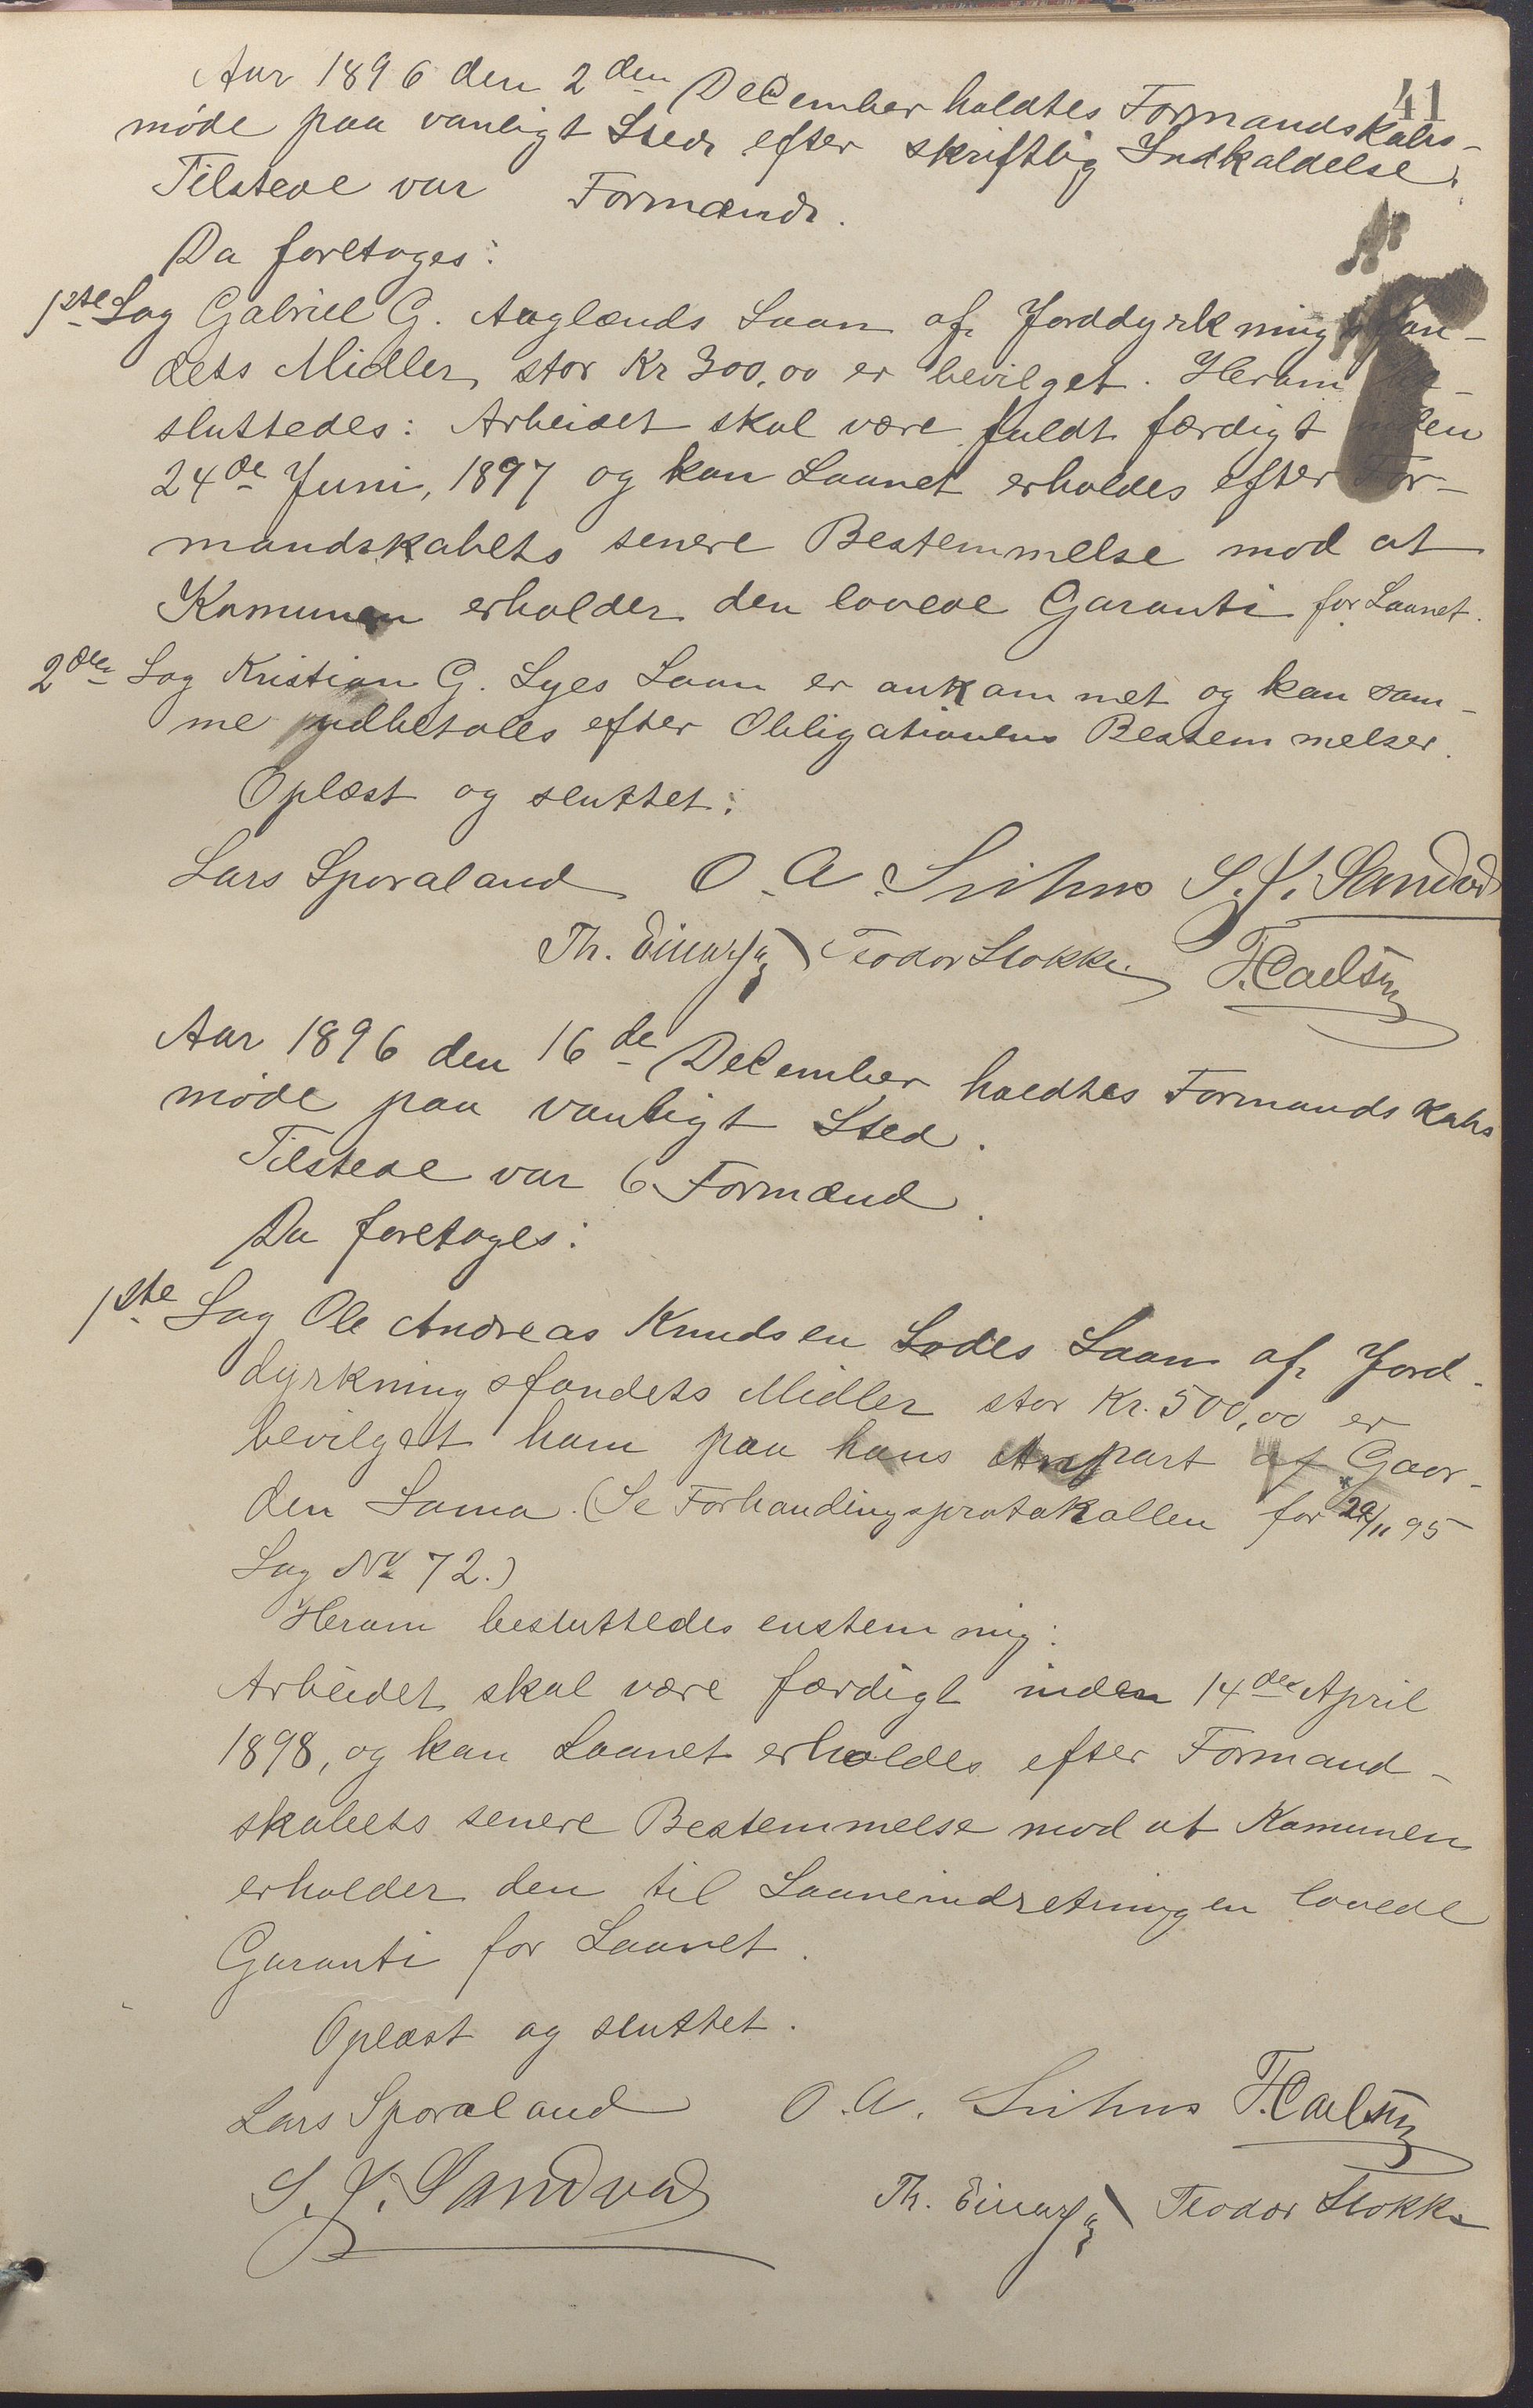 41
Aar 1896 den 2den December holdtes Formandskabs-
møde paa vanligt Sted efter skriftlig Indkaldelse.
Tilstede var Formænd.
Da foretoges:
1ste Sag Gabriel G. Auglænds Laan af Jorddyrkningsfon-
dets Midler, stor Kr 300,00 er bevilget. Herom be-
sluttedes: Arbeidet skal være fuldt færdigt inden
24de Juni, 1897 og kan Laanet erholdes efter For-
mandskabets senere Bestemmelse mod at
Komunen erholder den lovede Garanti for Laanet.
2den Sag Kristian G. Lyes Laan er ankommet og kan sam-
me udbetales efter Obligationens Bestemmelser.
Oplæst og sluttet:
Lars Sporaland O. A. S. J. Sandved
Th. Teodor Stokke
Aar 1896 den 16de December holdtes Formandskabs
møde paa vanligt Sted.
Tilstede var 6 Formænd.
Da foretoges:
1ste Sag Ole Andreas Knudsen Lodes Laan af Jord-
dyrkningsfondets Midler stor Kr. 500,00 er
bevilget ham paa hans Anpart af Gaar-
den Soma. (Se Forhandingsprotokollen for 20/11 95
Sag No 72.)
Herom besluttedes enstemmig:
Arbeidet skal være færdigt inden 14de April
1898, og kan Laanet erholdes efter Formand-
skabets senere Bestemmelse mod at Komunen
erholder den til Laaneindretningen lovede
Garanti for Laanet.
Oplæst og sluttet.
Lars Sporaland O. A.
S. J. Sandved Th. Teodor Stokke